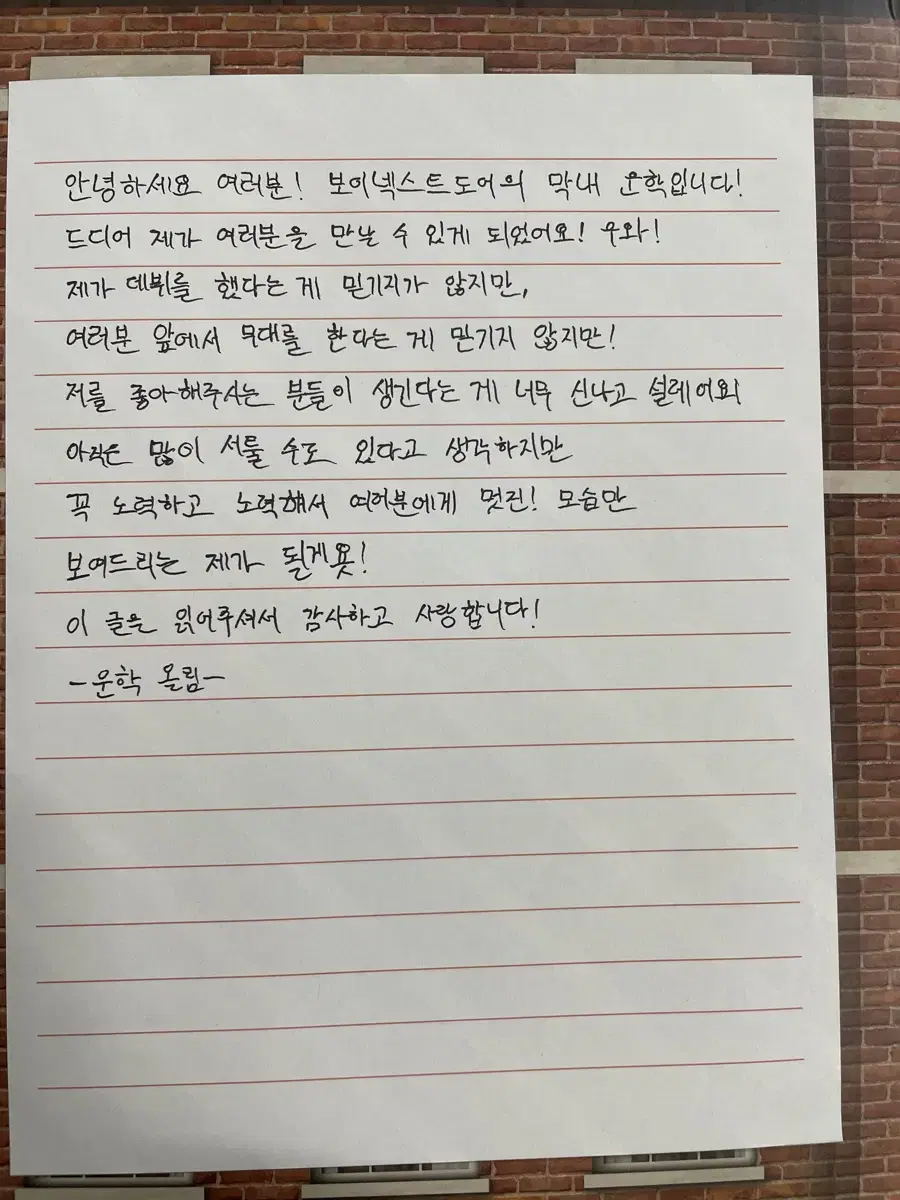 안녕하세요 여러분! 보이넥스트도어의 막내 운학입니다!
드디어 제가 여러분을 만날 수 있게 되었어요! 우와!
제가 데뷔를 했다는 게 믿기지가 않지만,
여러분 앞에서 무대를 한다는 게 믿기지 않지만!
저를 좋아해주시는 분들이 생긴다는 게 너무 신나고 설레어요!
아직은 많이 서툴 수도 있다고 생각하지만
꼭 노력하고 노력해서 여러분에게 멋진! 모습만
보여드리는 제가 될게욧!
이 글을 읽어주셔서 감사하고 사랑합니다!
-운학 올림-